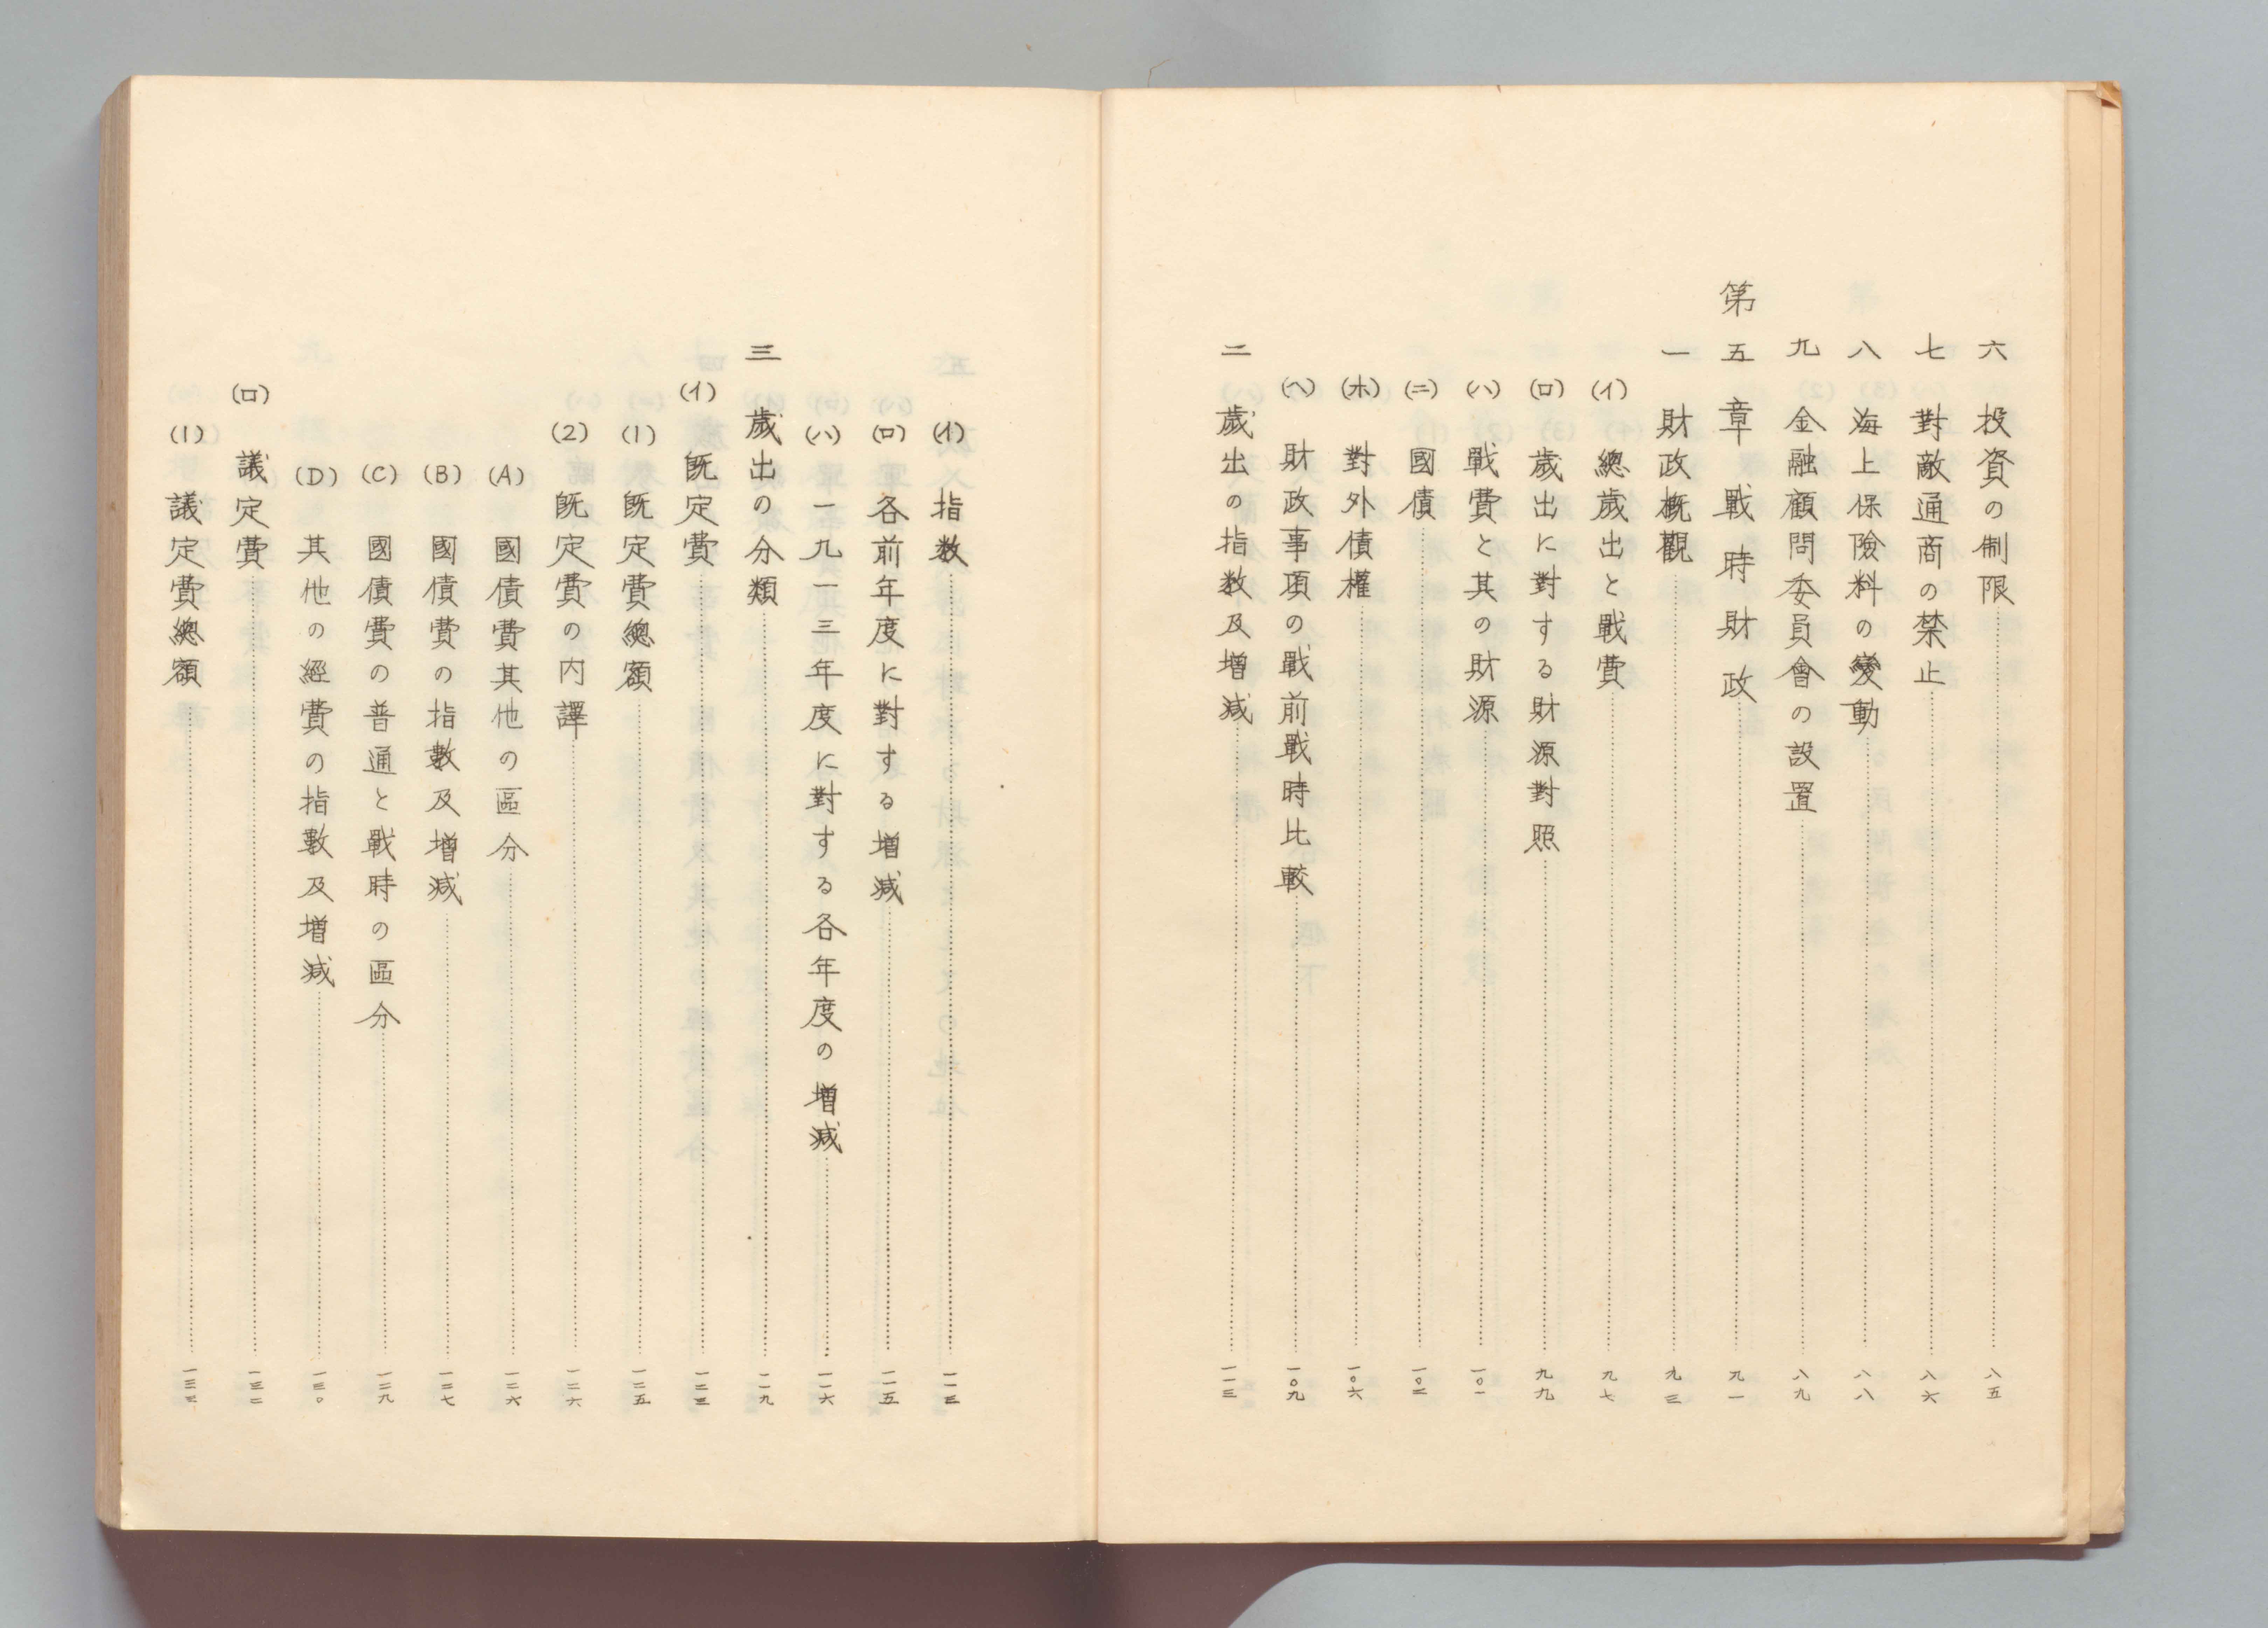 六 投資の制限 八五
七 對敵通商の禁止 八六
八 海上保險料の變動 八八
九 金融顧問委員會の設置 八九
第五章 戰時財政 九一
一 財政概觀 九三
(イ) 總歲出と戰費 九七
(ロ) 歲出に對する財源對照 九九
(ハ) 戰費と其の財源 一〇一
(ニ) 國債 一〇二
(ホ) 對外債權 一〇六
(ヘ) 財政事項の戰前戰時比較 一〇九
二 歲出の指数及増減 一一三
(イ) 指数 一一三
(ロ) 各前年度に對する増減 一一五
(ハ) 一九一三年度に對する各年度の増減 一一六
三 歲出の分類 一一九
(イ) 既定費 一二三
(1) 既定費總額 一二五
(2) 既定費の内譯 一二六
(A) 國債費其他の區分 一二六
(B) 國債費の指數及増減 一二七
(C) 國債費の普通と戰時の區分 一二九
(D) 其他の經費の指數及増減 一三〇
(ロ) 議定費 一三二
(1) 議定費總額 一三三